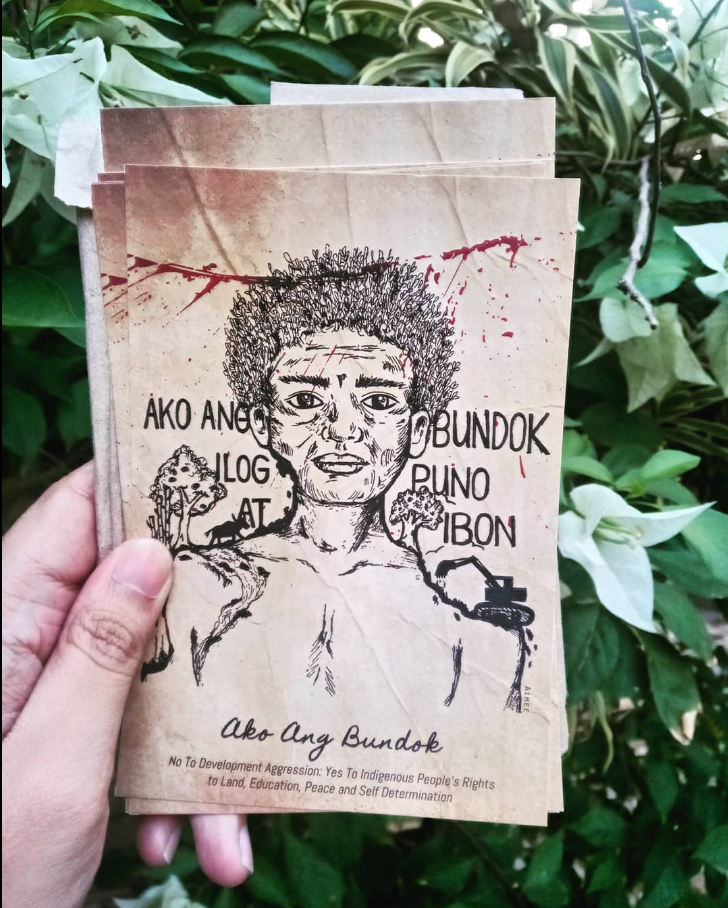 AKO ANG BUNDOK
ILOG PUNO
AT IBON
AIMEE
Ako Ang Bundok
No To Development Aggression: Yes To Indigenous People's Rights
to Land, Education, Peace and Self Determination